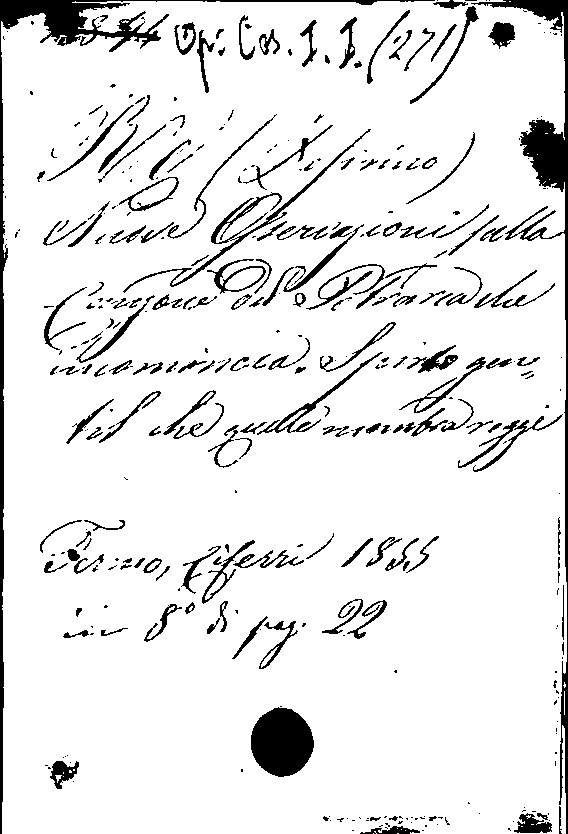 Op: Cos. I. I. (271)
Re (Zefirino)
Nuove Osservazioni sulla
Canzone del Petrarca che
incomincia. Spirto gen,,
til che quelle membra reggi
Fermo, Ciferri 1855
in 8° di pag. 22